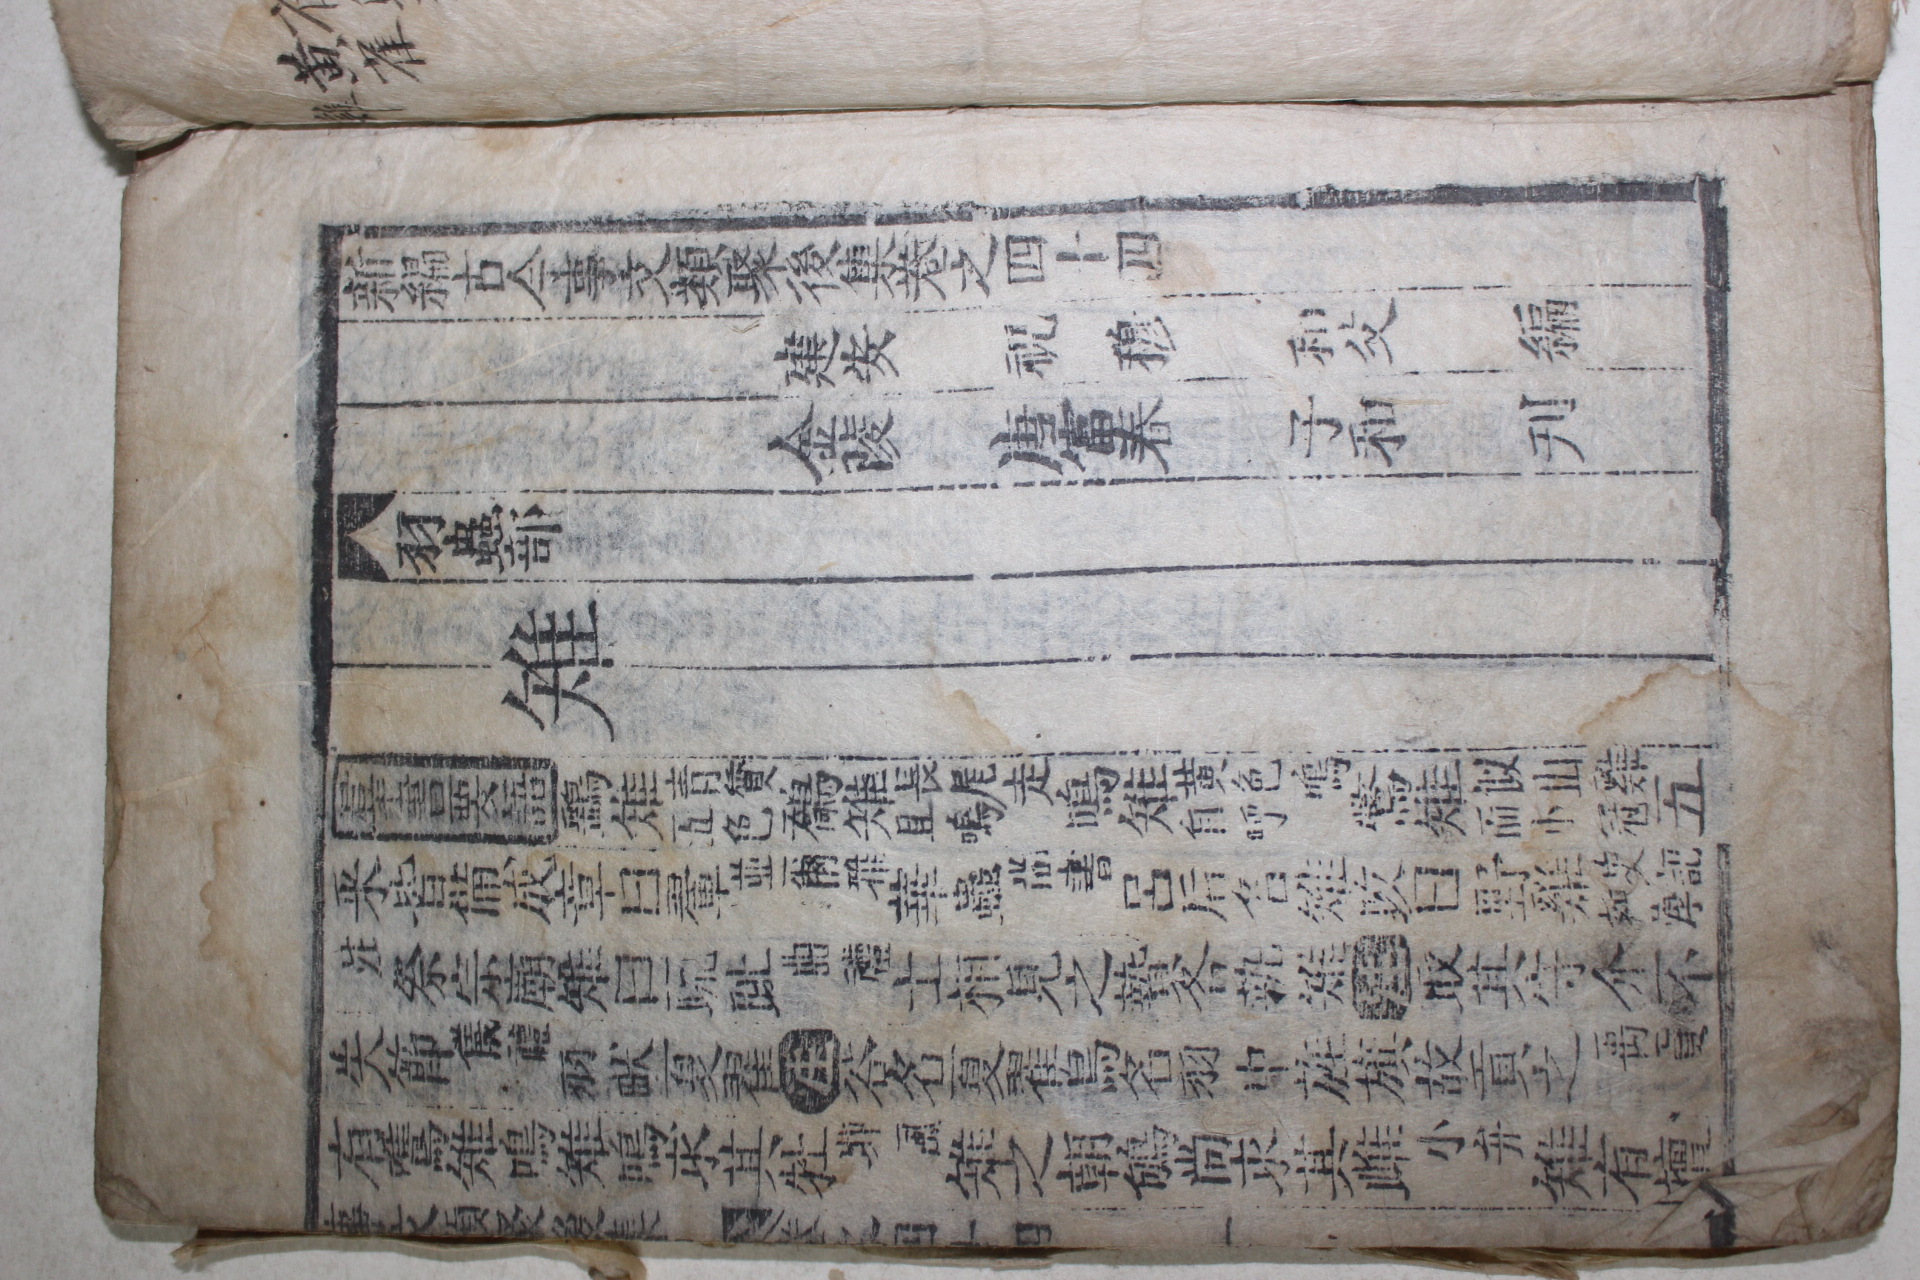 黃雀
新編古今事文類聚後集卷之四十四
建安 祝 穆 和父 編
金陵 唐富春 子和 刋
羽蟲部
雉
羣書要語 鷂雉青質五色 鷮雉長尾走且鳴 鳴雉黃色鳴自呼 鷩雉似山雞而小冠 五
采皆備成章曰翬並爾雅 華蟲尚書 呂后名雉改曰野雞史記
祭宗廟雉曰疏趾曲禮 士相見之贄冬執雉 注 取其守介不
失節儀禮 羽畎夏翟 注 谷名夏翟鳥名羽中旌旗故貢之禹貢
有鷕雉鳴雉鳴求其牡邶風 雉之朝鴝尚求其雌小弁 雉有
事文類聚後集 卷之四十四 一